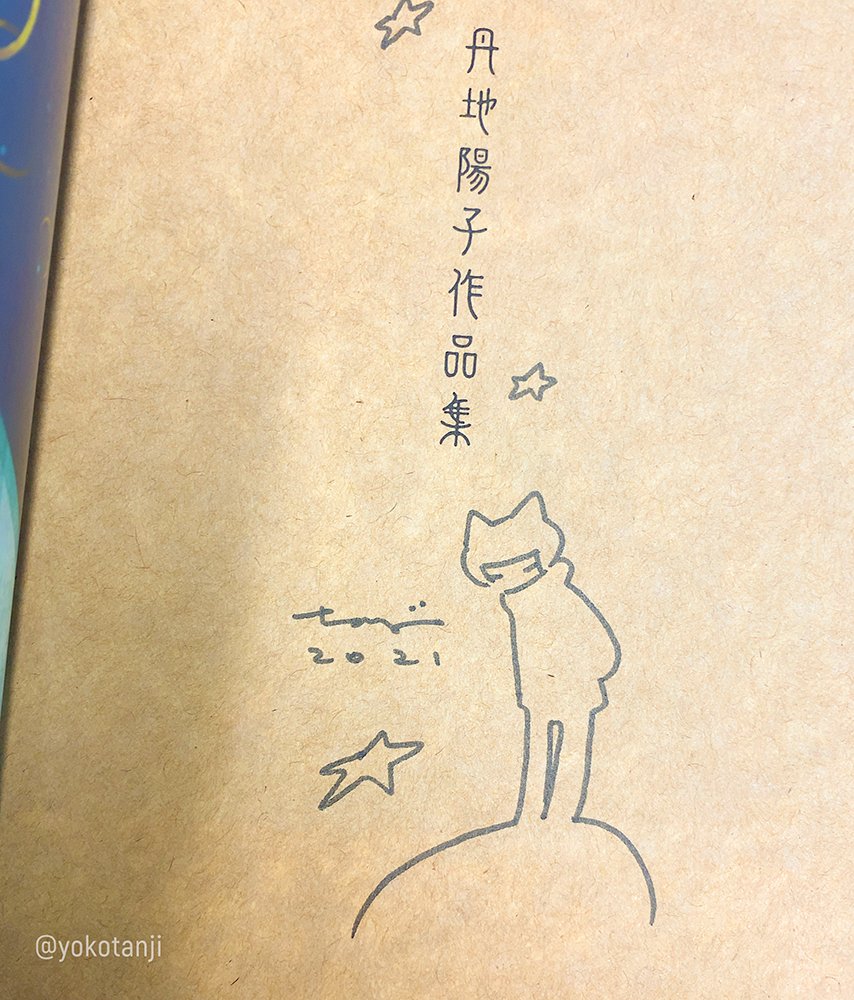 丹地陽子作品集
tanji
2021
@yokotanji